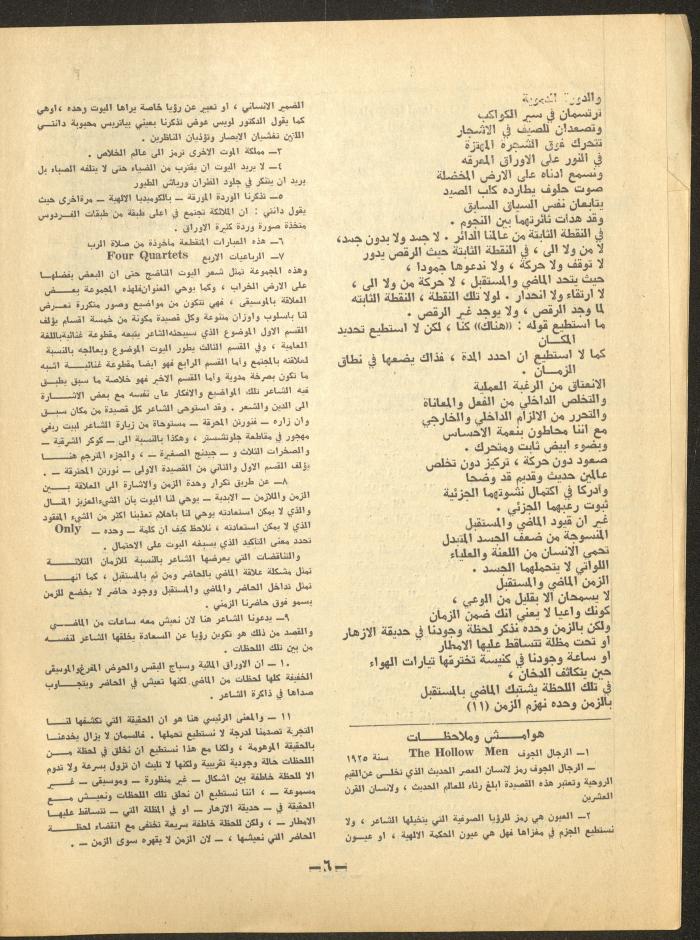 والدورة الدموية
ترتسمان في سير الكواكب
وتصعدان للصيف في الاشجار
نتحرك فوق الشجرة المهتزة
في النور على الاوراق المعرقه
ونسمع ادناه على الارض المخضلة
صوت حلوف يطارده كلب الصيد
يتابعان نفس السياق السابق
وقد هدات ثائرتهما بين النجوم .
في النقطة الثابتة من عالمنا الدائر . لا جسد ولا بدون جسد،
لا من ولا الى ، في النقطة الثابتة حيث الرقص يدور
لا توقف ولا حركة ، ولا ندعوها جمودا ،
حيث يتحد الماضي والمستقبل ، لا حركة من ولا الى ،
لا ارتقاء ولا انحدار . لولا تلك النقطة ، النقطة الثابته
لما وجد الرقص ، ولا يوجد غير الرقص .
ما استطيع قوله : ((هناك)) كنا ، لكن لا استطيع تحديد
المكـــان
كما لا استطيع ان احدد المدة ، فذاك يضعها في نطاق
الزمـــان .
الانعتاق من الرغبة العملية
والتخلص الداخلي من الفعل والمعاناة
والتحرر من الالزام الداخلي والخارجي
مع اننا محاطون بنعمة الاحساس
وبضوء ابيض ثابت ومتحرك .
صعود دون حركة ، تركيز دون تخلص
عالمين حديث وقديم قد وضحا
وادركا في اكتمال نشوتهما الجزئية
ثبوت رعبهما الجزئي .
غير ان قيود الماضي والمستقبل
المنسوجة من ضعف الجسد المتبدل
تحمي الانسان من اللعنة والعلياء
اللواتي لا يتحملهما الجسد .
الزمن الماضي والمستقبل
لا يسمحان الا بقليل من الوعي ،
كونك واعيا لا يعني انك ضمن الزمان
ولكن بالزمن وحده نذكر لحظة وجودنا في حديقة الازهار
او تحت مظلة تتساقط عليها الامطار
او ساعة وجودنا في كنيسة تخترقها تيارات الهواء
حين يتكاثف الدخان ،
في تلك اللحظة يشتبك الماضي بالمستقبل
بالزمن وحده نهزم الزمن (١١)
هوامـش وملاحظـات
١ـ الرجال الجوف The Hollow Men سنة ١٩٢٥
ـ الرجال الجوف رمز لانسان العصر الحديث الذي تخلـى عن القيم
الروحية وتعتبر هذه القصيدة ابلغ رثاء للعالم الحديث ، ولانسان القرن
العشرين
٢ـ العيون هي رمز للرؤيا الصوفية التي يتخيلها الشاعر ، ولا
نستطيع الجزم في مغزاها فهل هي عيون الحكمة الالهية ، او عيـون
الضمير الانساني ، او تعبير عن رؤيا خاصة يراها اليوت وحده ، اوهي
كما يقول الدكتور لويس عوض تذكرنا بعيني بياتريس محبوبة دانتـي
اللتين تغشيان الابصار وتؤذيان الناظرين .
٣ـ مملكة الموت الاخرى ترمز الى عالم الخلاص .
٤ـ لا يريد اليوت ان يقترب من الضياء حتى لا يتلفه الصياء بل
يريد ان يتنكر في جلود الفئران ورياش الطيور
٥ـ تذكرنا الوردة المورقة ـ بالكوميديا الالهية ـ مرة اخرى حيث
يقول دانتي : ان الملائكة تجتمع في اعلى طبقة من طبقات الفــردوس
متخذة صورة وردة كثيرة الاوراق .
٦ـ هذه العبارات المتقطعة ماخوذة من صلاة الرب
٧ـ الرباعيات الاربع Four Quartets
وهذه المجموعة تمثل شعر اليوت الناضج حتى ان البعض يفضلهـا
على الارض الخراب ، وكما يوحي العنوان فلهذه المجموعة بعـــض
العلاقة بالموسيقى ، فهي تتكون من مواضيع وصور متكررة تعــرض
لنا باسلوب واوزان متنوعة وكل قصيدة مكونة من خمسة اقسام يؤلف
القسم الاول الموضوع الذي سيبحثه الشاعر يتبعه مقطوعة غنائية باللغة
العامية ، وفي القسم الثالث يطور اليوت الموضوع ويعالجه بالنسبة
لعلاقته بالمجتمع واما القسم الرابع فهو ايضا مقطوعة غنائيــة اشبه
ما تكون بصرخة مدوية واما القسم الاخير فهو خلاصة ما سبق يطبـق
فيه الشاعر تلك المواضيع والافكار على نفسه مع بعض الاشــــارة
الى الدين والشعر . وقد استوحى الشاعر كل قصيدة من مكان سبـق
وان زاره ـ فنورتن المحرقة ـ مستوحاة من زيارة الشاعر لبيت ريفي
مهجور في مقاطعة جلوتشستر ، وهكذا بالنسبة الى ـ كوكر الشرقية ـ
والصخرات الثلاث و ـ جيدنج الصغيرة ـ ، والجزء المترجم هنـــا
يؤلف القسم الاول والثاني من القصيدة الاولى ـ نورتن المحترقة ـ .
٨ـ عن طريق تكرار وحدة الزمن والاشارة الى العلاقة بــــين
الزمن واللازمن ـ الابدية ـ يوحي لنا اليوت بان الشيء العزيز المنـال
والذي لا يمكن استعادته يوحي لنا باحلام تعذبنا اكثر من الشيء المفقود
الذي لا يمكن استعادته ، نلاحظ كيف ان كلمة ـ وحده ـ Only
تحدد معنى التاكيد الذي يسبغه اليوت على الاحتمال .
والتناقضات التي يعرضها الشاعر بالنسبة للازمان الثلاثــــة
تمثل مشكلة علاقة الماضي بالحاضر ومن ثم بالمستقبل ، كما انهــا
تمثل تداخل الحاضر والماضي والمستقبل ووجود حاضر لا يخضع للزمن
يسمو فوق حاضرنا الزمني .
٩ـ يدعونا الشاعر هنا لان نعيش معه ساعات من الماضـــي
والقصد من ذلك هو تكوين رؤيا عن السعادة يخلقها الشاعر لنفســه
من بين تلك اللحظات .
١٠ ـ ان الاوراق المائية وسياج البقس والحوض المفرغ والموسيقى
الخفيفة كلها لحظات من الماضي لكنها تعيش في الحاضر ويتجـــاوب
صداها في ذاكرة الشاعر .
١١ ـ والمعنى الرئيسي هنا هو ان الحقيقة التي تكشفها لنـــا
التجربة تصدمنا لدرجة لا نستطيع تحملها . فالسمان لا يزال يخدعنـا
بالحقيقة الموهومة ، ولكنا مع هذا نستطيع ان نخلق في لحظة مــن
اللحظات حالة وجودية تقريبية ولكنها لا تلبث ان تزول بسرعة ولا تدوم
الا للحظة خاطفة بين اشكال ـ غير منظورة ـ وموسيقى ـ غـــير
مسموعة ـ ، اننا نستطيع ان نخلق تلك اللحظات ونعيـــش مـــع
الحقيقة في ـ حديقة الازهار ـ او في المظلة التي ـ تتساقط عليهـا
الامطار ـ ، ولكن للحظة خاطفة سريعة تختفي مع انقضاء لحظـــة
الحاضر التي نعيشها ، ـ لان الزمن لا يقهره سوى الزمن ـ .
ـ٦ـ